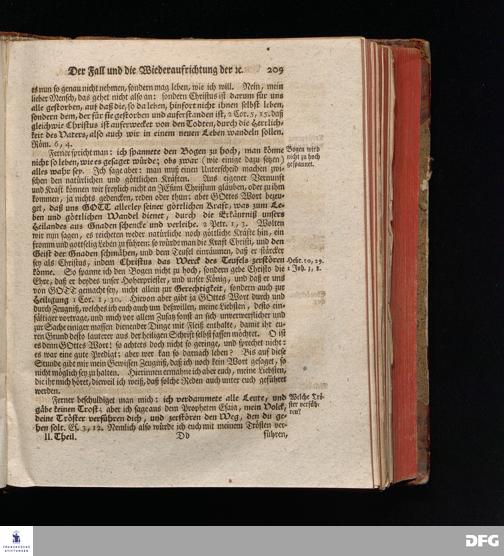 Der Fall und die Wiederaufrichtung der ꝛc. 209
es nun so genau nicht nehmen, sondern mag leben, wie ich will. Nein, mein
lieber Mensch, das gehet nicht also an: sondern Christus ist darum für uns
alle gestorben, auf daß die, so da leben, hinfort nicht ihnen selbst leben,
sondern dem, der für sie gestorben und auferstanden ist, 2 Cor. 5, 15. daß
gleichwie Christus ist auferwecket von den Todten, durch die Herrlich-
keit des Vaters, also auch wir in einem neuen Leben wandeln sollen.
Röm. 6, 4.
Ferner spricht man: ich spannete den Bogen zu hoch, man könne
nicht so leben, wie es gesaget würde; obs zwar (wie einige dazu setzen)
alles wahr sey. Ich sage aber: man muß einen Unterscheid machen zwi-
schen den natürlichen und göttlichen Kräften. Aus eigener Vernunft
und Kraft können wir freylich nicht an JEsum Christum gläuben, oder zu ihm
kommen, ja nichts gedencken, reden oder thun: aber GOttes Wort bezeu-
get, daß uns GOTT allerley seiner göttlichen Kraft, was zum Le-
ben und göttlichen Wandel dienet, durch die Erkäntniß unsers
Heilandes aus Gnaden schencke und verleihe. 2 Petr. 1, 3. Wolten
wir nun sagen, es reichten weder natürliche noch göttliche Kräfte hin, ein
fromm und gottselig Leben zu führen: so würde man die Kraft Christi, und den
Geist der Gnaden schmähen, und dem Teufel einräumen, daß er stärcker
sey als Christus, indem Christus das Werck des Teufels zerstören
könne. So spanne ich den Bogen nicht zu hoch, sondern gebe Christo die
Ehre, daß er beydes unser Hoherpriester, und unser König, und daß er uns
von GOTT gemacht sey, nicht allein zur Gerechtigkeit, sondern auch zur
Heiligung 1 Cor. 1, 30. Hievon aber gibt ja GOttes Wort durch und
durch Zeugniß, welches ich euch auch um deßwillen, meine Liebsten, desto ein-
fältiger vortrage, und mich vor allem Zusatz sonst an sich unverwerflicher und
zur Sache einiger massen dienender Dinge mit Fleiß enthalte, damit ihr eu-
ren Grund desto lauterer aus der heiligen Schrift selbst fassen möchtet. O ist
es denn GOttes Wort: so achtets doch nicht so geringe, und sprechet nicht:
es war eine gute Predigt; aber wer kan so darnach leben? Bis auf diese
Stunde gibt mir mein Gewissen Zeugniß, daß ich noch kein Wort gesaget, so
nicht möglich sey zu halten. Hierinnen ermahne ich aber euch, meine Liebsten,
die ihr mich höret, dieweil ich weiß, daß solche Reden auch unter euch geführet
werden.
Ferner beschuldiget man mich: ich verdammete alle Leute, und
gäbe keinen Trost; aber ich sage aus dem Propheten Esaia, mein Volck,
deine Tröster verführen dich, und zerstören den Weg, den du ge-
hen solt. Es. 3, 12. Nemlich also würde ich euch mit meinem Trösten ver-
II. Theil. Dd führen,
Bogen wird
nicht zu hoch
gespannet.
Hebr. 10, 29.
1 Joh. 3, 8.
Welche Trö-
ster verfüh-
ren?
FRANCKESCHE
STIFTUNGEN
DFG